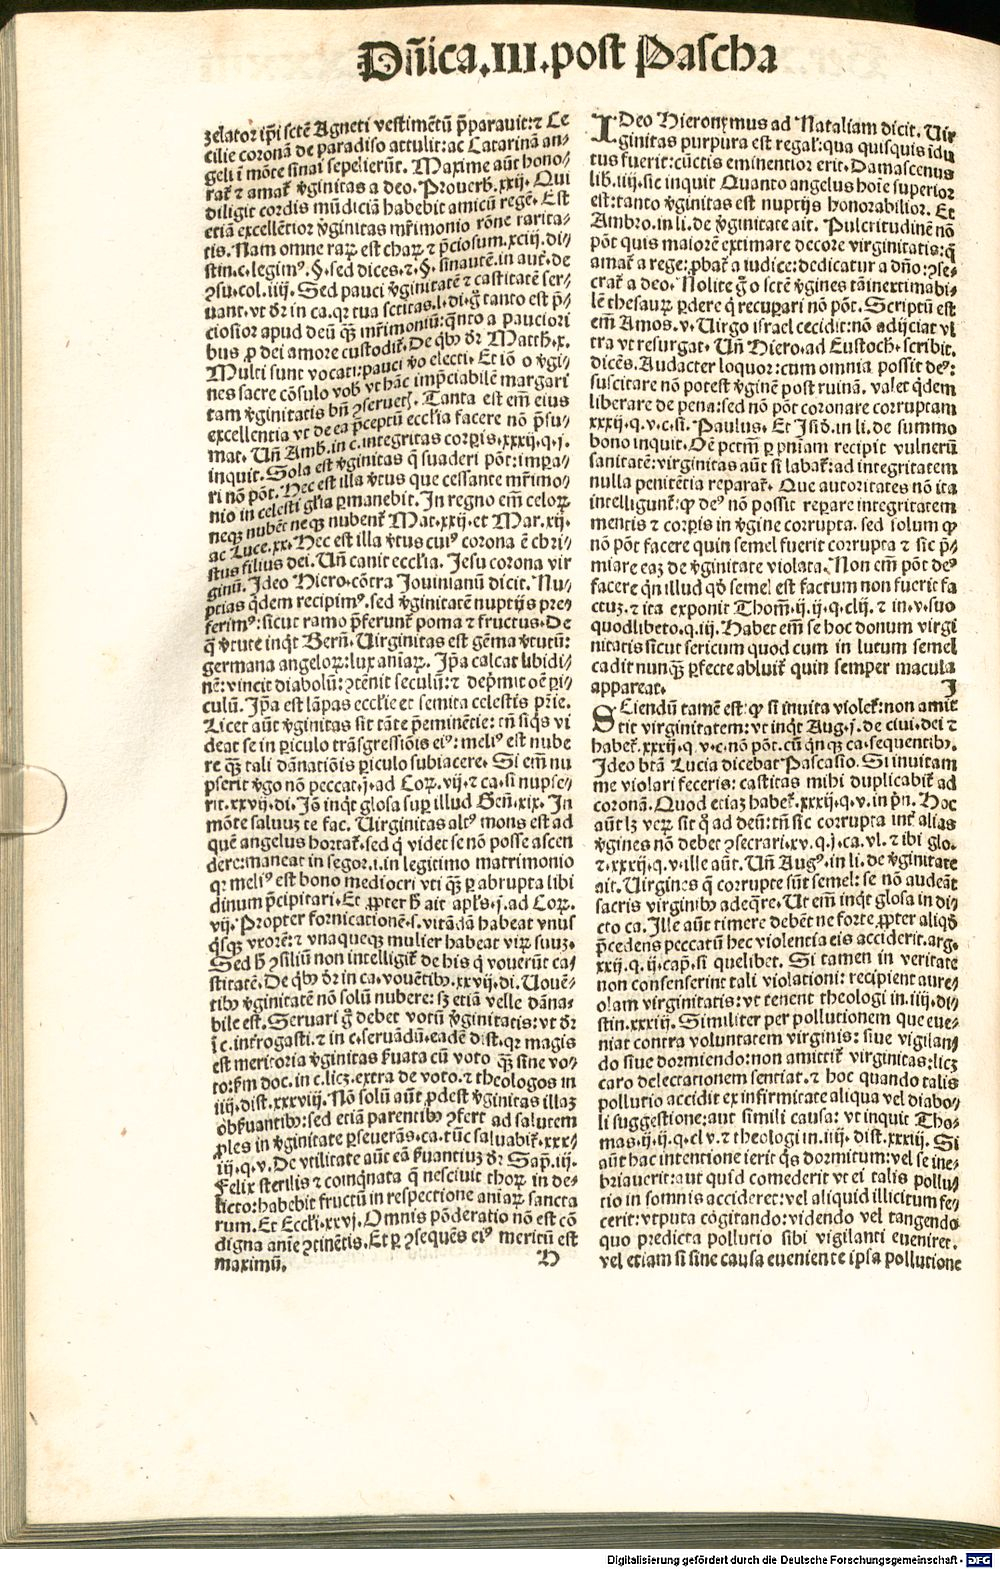 Dñica.III.post Pascha
zelator ip̃i sctẽ Agneti vestimẽtũ p̃parauit: ⁊ Ce
cilie coronã de paradiso attulit: ac Catarinã an⸗
geli ĩ mõte sinai sepelierũt. Maxime aũt hono⸗
rat᷑ ⁊ amat᷑ v̾ginitas a deo. Prouerb̃.xxij. Qui
diligit cordis mũdiciã habebit amicũ regẽ. Est
etiã excellẽtior v̾ginitas mr̃imonio rõne rarita⸗
tis. Nam omne raꝝ est chaꝝ ⁊ p̃ciosum.xciij.di⸗
stin.c.legim⁹.§.sed dices.⁊.§.sinautẽ.in aut̃.de
ꝯsu.col.iiij. Sed pauci v̾ginitatẽ ⁊ castitatẽ ser⸗
uant. vt dr̃ in ca.qꝛ tua sctitas.l.di.g̊ tanto est p̃⸗
ciosior apud deũ qꝫ mr̃imoniũ: q̃nto a paucior̃i
bus ꝓ dei amore custodit᷑. De qb⁹ dr̃ Matth̃.x.
Multi sunt vocati: pauci v̾o electi. Et iõ o v̾gi⸗
nes sacre cõsulo vob̃ vt hãc imp̃ciabilẽ margari
tam v̾ginitatis bñ ꝯseruetꝭ. Tanta est em̃ eius
excellentia vt de ea p̃ceptũ eccl̃ia facere nõ p̃su⸗
mat. Uñ Amb.in c.integritas corꝑis.xxxij.q.j.
inquit. Sola est v̾ginitas q̃ suaderi põt: imꝑa⸗
ri nõ põt. Hec est illa v̾tus que cessante mr̃imo⸗
nio in celesti gl̃ia ꝑmanebit. In regno em̃ celoꝝ
neqꝫ nubẽt neqꝫ nubent᷑ Mat.xxij.et Mar.xij.
ac Luce.xx. Hec est illa v̾tus cui⁹ corona ẽ chri⸗
stus filius dei. Uñ canit eccl̃ia. Jesu corona vir
ginũ. Jdeo Hiero.cõtra Jouinianũ dicit. Nu⸗
ptias q̃dem recipim⁹. sed v̾ginitatẽ nuptijs pre
ferim⁹: sicut ramo p̃ferunt᷑ poma ⁊ fructus. De
q̃ v̾tute inq̃t Berñ. Uirginitas est gẽma v̾tutũ:
germana angeloꝝ: lux aniaꝝ. Jp̃a calcat libidi⸗
nẽ: vincit diabolũ: ꝯtẽnit seculũ: ⁊ dep̃mit oẽ ꝑi⸗
culũ. Jp̃a est lãpas eccl̃ie et semita celestis p̃rie.
Licet aũt v̾ginitas sit tãte p̃eminẽtie: tñ siq̃s vi
deat se in ꝑiculo trãsgressiõis ei⁹: meli⁹ est nube
re qꝫ tali dãnatiõis ꝑiculo subiacere. Si em̃ nu
pserit v̾go nõ peccat.j.ad Coꝝ.vij.⁊ ca.si nupse⸗
rit.xxvij.di. Jõ inq̃t glosa suꝑ illud Geñ.xix. Jn
mõte saluuz te fac. Uirginitas alt⁹ mons est ad
quẽ angelus hortat᷑. sed q̃ videt se nõ posse ascen
dere: maneat in segor.i.in legitimo matrimonio
qꝛ meli⁹ est bono mediocri vti qꝫ ꝑ abrupta libi
dinum p̃cipitari. Et ꝓpter h̃ ait apl̃s.j.ad Coꝝ.
vij. Propter fornicationẽ.s.vitãdã habeat vnus
q̃sqꝫ vxorẽ: ⁊ vnaqueqꝫ mulier habeat viꝝ suuz.
Sed h̃ ꝯsiliũ non intelligit᷑ de his q̃ vouerũt ca⸗
stitatẽ. De qb⁹ dr̃ in ca.vouẽtib⁹.xxvij.di. Uouẽ⸗
tib⁹ v̾ginitatẽ nõ solũ nubere: sꝫ etiã velle dãna⸗
bile est. Seruari g̊ debet votũ v̾ginitatis: vt dr̃
ĩ c.int̾rogasti.⁊ in c.seruãdũ.eadẽ dist.qꝛ magis
est meritoria v̾ginitas ẜuata cũ voto qꝫ sine vo⸗
to: ẜm doc.in c.licꝫ.extra de voto.⁊ theologos in
iiij.dist.xxxviij. Nõ solũ aũt ꝓdest v̾ginitas illaꝫ
obẜuantib⁹: sed etiã parentib⁹ ꝯfert ad salutem
ꝓles in v̾ginitate ꝑseuerãs.ca.tũc saluabit᷑.xxx⸗
iij.q.v. De vtilitate aũt eã ẜuantiuꝫ dr̃ Sap̃.iij.
Felix sterilis ⁊ coinq̃nata q̃ nesciuit thoꝝ in de⸗
licto: habebit fructũ in respectione aniaꝝ sancta
rum. Et Eccl̃i.xxvj. Omnis põderatio nõ est cõ
digna anĩe ꝯtinẽtis. Et ꝑ ꝯsequẽs ei⁹ meritũ est
maximũ. H
IDeo Hieronymus ad Nataliam dicit. Uir
ginitas purpura est regal̃: qua quisquis ĩdu
tus fuerit: cũctis eminentior erit. Damascenus
lib̃.iiij. sic inquit Quanto angelus hoĩe superior
est: tanto v̾ginitas est nuptijs honorabilior. Et
Ambro.in li.de v̾ginitate ait. Pulcritudinẽ nõ
põt quis maiorẽ extimare decore virginitatis: q̃
amat᷑ a rege: ꝓbat᷑ a iudice: dedicatur a dño: ꝯse⸗
crat᷑ a deo. Nolite g̊ o sctẽ v̾gines tã inextimabi⸗
lẽ thesauꝝ ꝑdere q̃ recuꝑari nõ põt. Scriptũ est
em̃ Amos.v. Uirgo israel cecidit: nõ adijciat vl
tra vt resurgat. Uñ Hiero.ad Eustoch̃.scribit.
dicẽs. Audacter loquor: cum omnia possit de⁹:
suscitare nõ potest v̾ginẽ post ruinã. valet q̃dem
liberare de pena: sed nõ põt coronare corruptam
xxxij.q.v.c.si. Paulus. Et Jsid̃.in li.de summo
bono inquit. Oẽ pctm̃ ꝑ pñiam recipit vulnerũ
sanitatẽ: virginitas aũt si labat᷑: ad integritatem
nulla penitẽtia reparat᷑. Que autoritates nõ ita
intelligunt᷑: ꝙ de⁹ nõ possit reꝑare integritatem
mentis ⁊ corꝑis in v̾gine corrupta. sed solum ꝙ
nõ põt facere quin semel fuerit corrupta ⁊ sic p̃⸗
miare eaꝫ de v̾ginitate violata. Non em̃ põt de⁹
facere q̃n illud qd̾ semel est factum non fuerit fa
ctuꝫ.⁊ ita exponit Thom̃.ij.ij.q.clij.⁊ in.v.suo
quodlibeto.q.iij. Habet em̃ se hoc donum virgi
nitatis sicut sericum quod cum in lutum semel
cadit nunqꝫ ꝑfecte abluit᷑ quin semper macula
appareat. J
SCiendũ tamẽ est: ꝙ si inuita violet᷑: non amit
tit virginitatem: vt inq̃t Aug.j.de ciui.dei ⁊
habet᷑.xxxij.q.v.c.nõ põt.cũ q̃nqꝫ ca.sequentib⁹.
Jdeo btã Lucia dicebat Pascasio. Si inuitam
me violari feceris: castitas mihi duplicabit᷑ ad
coronã. Quod etiaꝫ habet᷑.xxxij.q.v.in p̃n. Hoc
aũt lꝫ veꝝ sit q̊ ad deũ: tñ sic corrupta int̾ alias
v̾gines nõ debet ꝯsecrari.xv.q.j.ca.vl.⁊ ibi glo.
⁊.xxxij.q.v.ille aũt. Uñ Aug⁹.in li.de v̾ginitate
ait. Uirgines q̃ corrupte sũt semel: se nõ audeãt
sacris virginib⁹ adeq̃re. Ut em̃ inq̃t glosa in di⸗
cto ca. Jlle aũt timere debẽt ne forte ꝓpter aliqd̾
p̃cedens peccatũ hec violentia eis acciderit. arg.
xxij.q.ij.cap̃.si quelibet. Si tamen in veritate
non consenserint tali violationi: recipient aure⸗
olam virginitatis: vt tenent theologi in.iiij.di⸗
stin.xxxiij. Similiter per pollutionem que eue⸗
niat contra voluntatem virginis: siue vigilan⸗
do siue dormiendo: non amittit᷑ virginitas: licꝫ
caro delectationem sentiat.⁊ hoc quando talis
pollutio accidit ex infirmitate aliqua vel diabo⸗
li suggestione: aut simili causa: vt inquit Tho⸗
mas.ij.ij.q.cl v.⁊ theologi in.iiij.dist.xxxiij. Si
aũt hac intentione ierit q̃s dormitum: vel se ine⸗
briauerit: aut quid comederit vt ei talis pollu⸗
tio in somnis accideret: vel aliquid illicitum fe⸗
cerit: vtputa cogitando: videndo vel tangendo
quo predicta pollutio sibi vigilanti eueniret.
vel etiam si sine causa eueniente ipsa pollutione
Digitalisierung gefördert durch die Deutsche Forschungsgemeinschaft - DFG